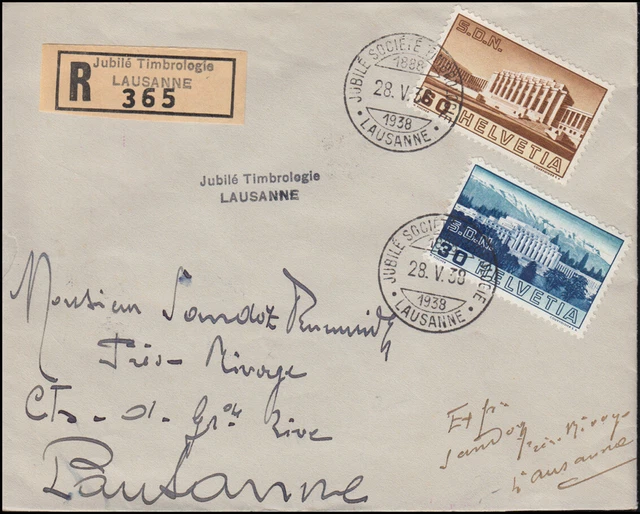 Jubilé Timbrologie
LAUSANNE
R 365
JUBILÉ SOCIÉTÉ
1888
28. V. 38
1938
LAUSANNE
S.D.N.
60
HELVETIA
Jubilé Timbrologie
LAUSANNE
JUBILÉ SOCIÉTÉ
28. V. 38
1938
LAUSANNE
S.D.N.
30
HELVETIA
Monsieur Sandoz
Près-Rivage
Ch. d. Rive
Lausanne
Sandoz
Lausanne